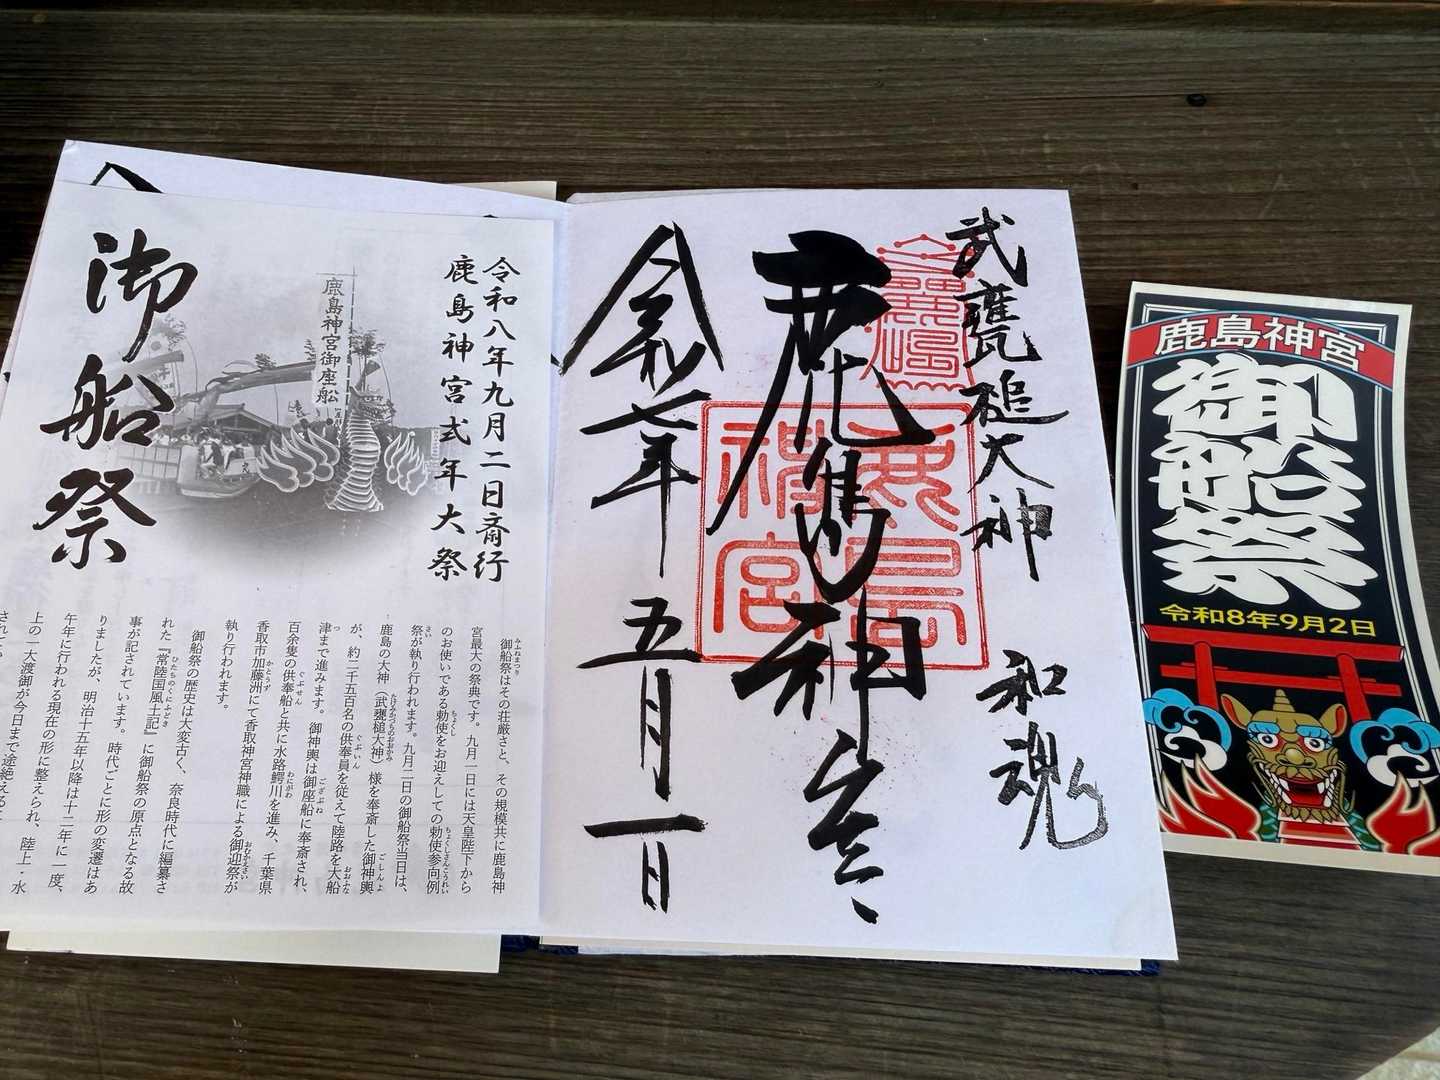 令和八年九月二日斎行
鹿島神宮式年大祭
鹿島神宮御座船
御船祭
御船祭はその荘厳さと、その規模共に鹿島神
宮最大の祭典です。九月一日には天皇陛下から
のお使いである勅使をお迎えしての勅使参向例
祭が執り行われます。九月二日の御船祭当日は、
鹿島の大神（武甕槌大神）様を奉斎した御神輿
が、約二千五百名の供奉員を従えて陸路を大船
津まで進みます。御神輿は御座船に奉斎され、
百余隻の供奉船と共に水路鰐川を進み、千葉県
香取市加藤洲にて香取神宮神職による御迎祭が
執り行われます。
御船祭の歴史は大変古く、奈良時代に編纂さ
れた『常陸国風土記』に御船祭の原点となる故
事が記されています。時代ごとに形の変遷はあ
りましたが、明治十五年以降は十二年に一度、
午年に行われる現在の形に整えられ、陸上・水
上の一大渡御が今日まで途絶えるこ
武甕槌大神 和魂
鹿島神宮
鹿島神宮
令和七年五月一日
鹿島神宮
御船祭
令和8年9月2日